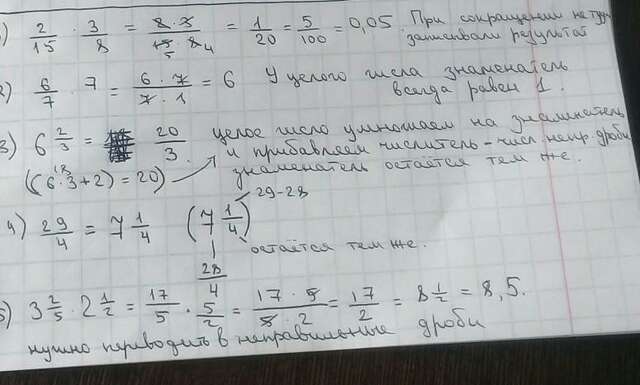 1) 2/15 · 3/8 = 2·3/15·8 5 4 = 1/20 = 5/100 = 0,05 При сокращении не туда записывали результат
2) 6/7 · 7 = 6·7/7·1 = 6 У целого числа знаменатель всегда равен 1.
3) 6 2/3 = 20/3. целое число умножаем на знаменатель и прибавляем числитель - числ. непр. дроби
((6·3+2) = 20) 18 знаменатель остаётся тем же.
4) 29/4 = 7 1/4 (7 1/4) 29-28
28/4 остаётся тем же.
5) 3 2/5 · 2 1/2 = 17/5 · 5/2 = 17·5/5·2 = 17/2 = 8 1/2 = 8,5.
нужно переводить в неправильные дроби